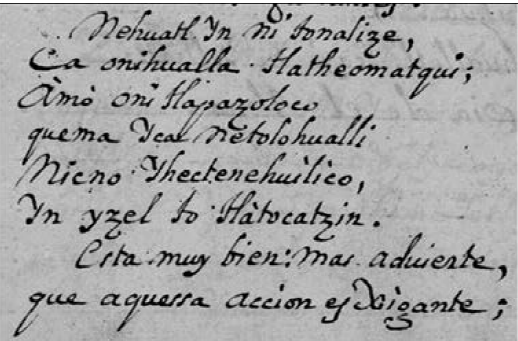 Nehuatl Yn ni tonalize,
Ca onihualla tlatheomatqui;
Àmò oni tlapazoloco
quema Yca nètolohualli
Nicno Yhectenehuilico,
Yn yzel to tlàtocatzin.
Esta muy bien: mas aduierte,
que aquessa accion es Xigante;